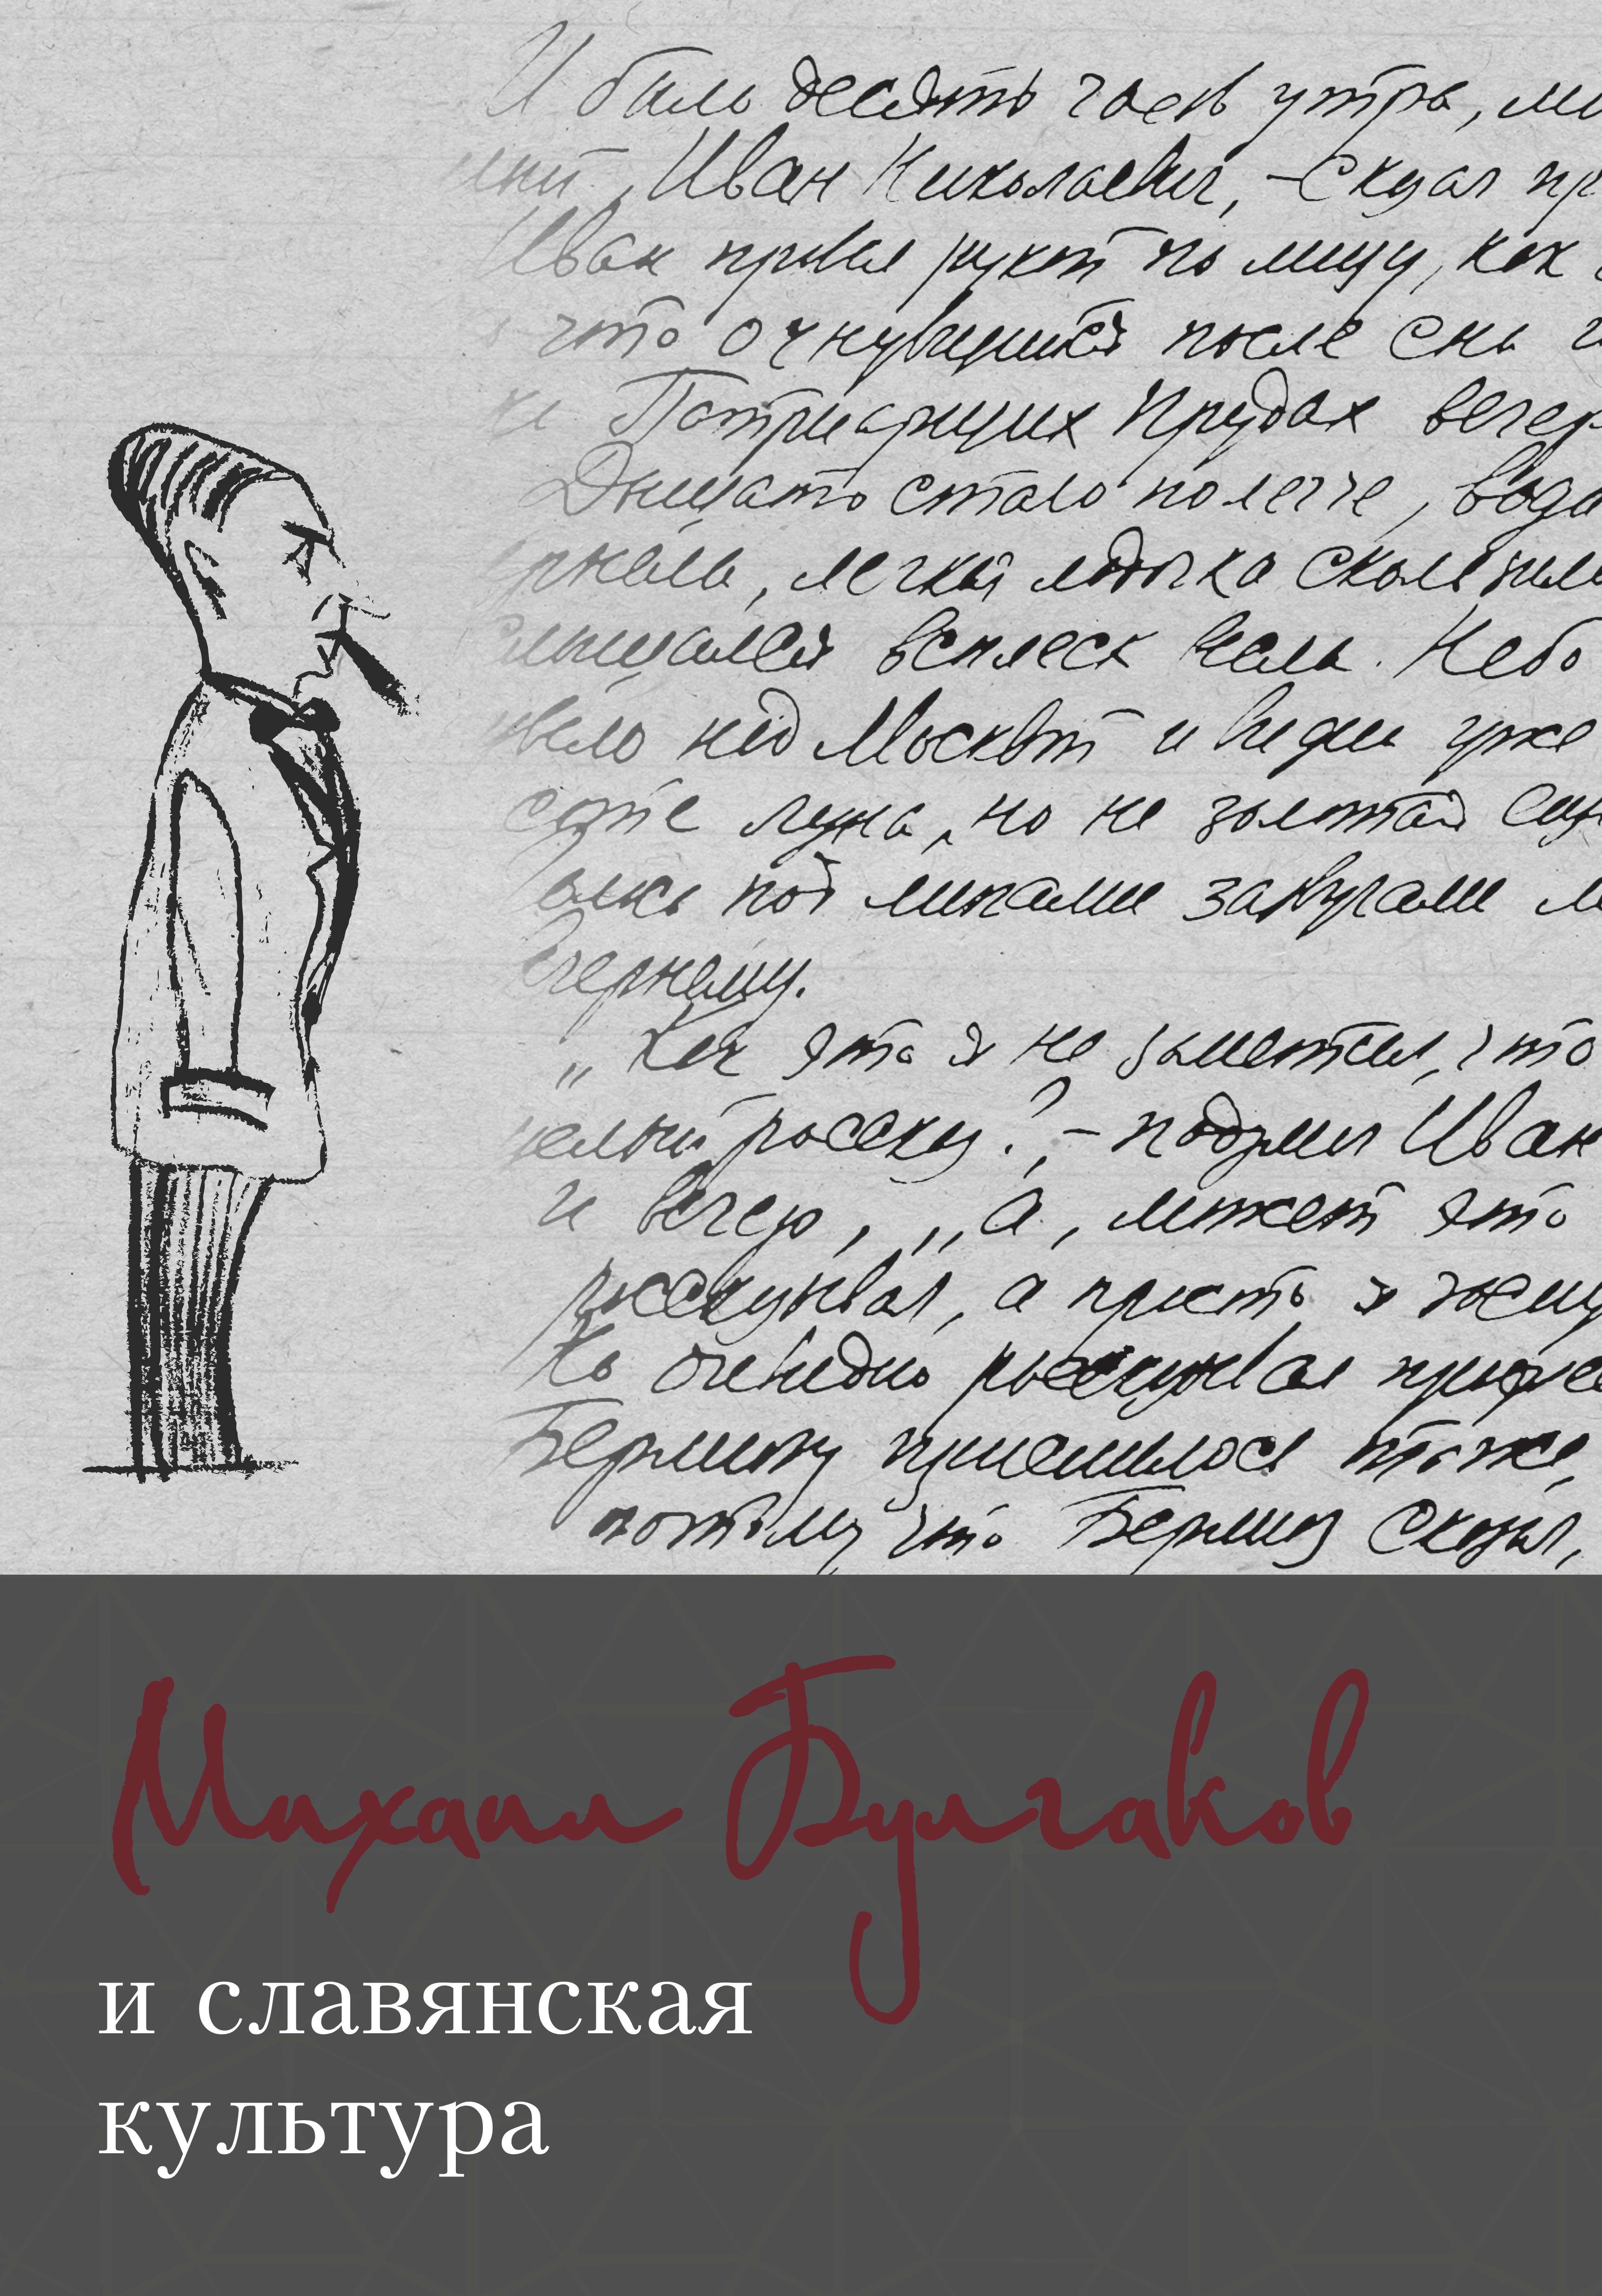 И было десять часов утра, мы
Иван Николаевич, – сказал пр
Иван провел рукой по лицу, как
что очнувшийся после сна
Патриарших Прудах вечер
Дышать стало полегче, вода
легкая лодочка скользила
всплеск весла. Небо
над Москвой и видна уже
луна, но не золотая
под липами зазвучали
вечернему.
„Как это я не заметил, что
целый рассказ?, – подумал Иван
и вечер, „а, может это
рассказывал, а просто я засну
Но очевидно рассказывал
Берлиозу приснилось то же,
потому что Берлиоз сказал,
Михаил Булгаков
и славянская
культура